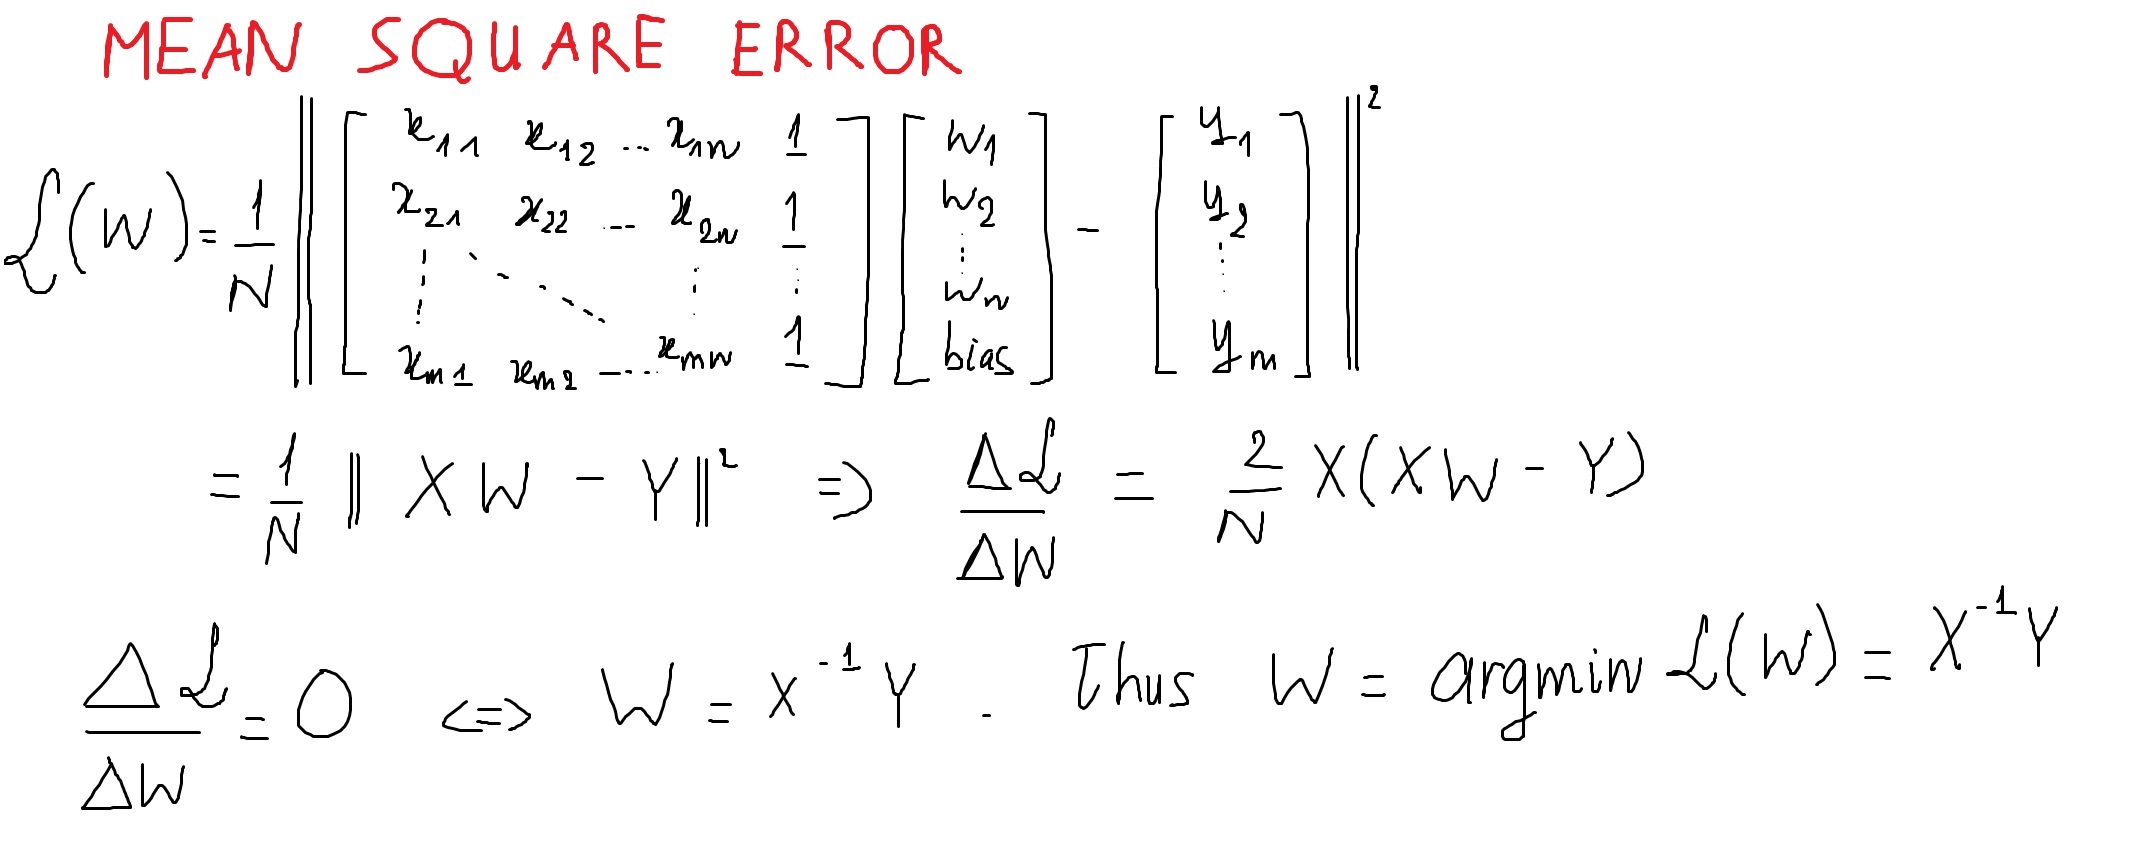 MEAN SQUARE ERROR
ℒ(W) = 1/N ‖ [x₁₁ x₁₂ ... x₁ₙ 1; x₂₁ x₂₂ ... x₂ₙ 1; ⋮ ⋱ ⋮ ⋮; xₘ₁ xₘ₂ ... xₘₙ 1] [w₁; w₂; ⋮; wₙ; bias] - [y₁; y₂; ⋮; yₘ] ‖²
= 1/N ‖ XW - Y‖² => Δℒ/ΔW = 2/N X(XW - Y)
Δℒ/ΔW = 0 <=> W = X⁻¹ Y . Thus W = argmin ℒ(W) = X⁻¹Y